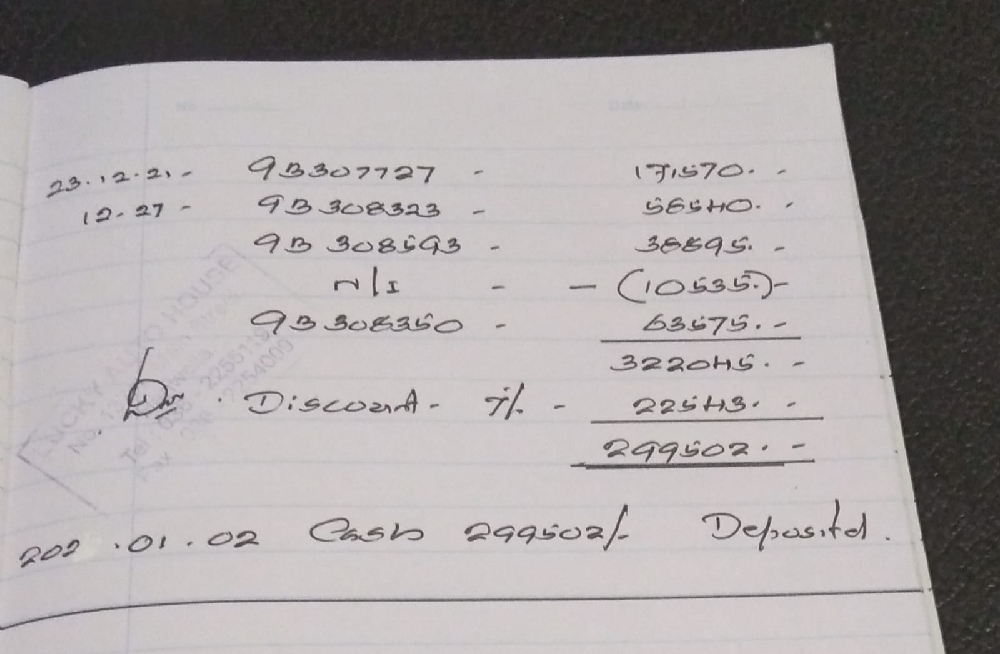 23.12.21 - 9B307727 - 171570. -
12-27 - 9B 308323 - 58540. -
9B 308593 - 38895. -
N/I - - (10535.)-
9B 308350 - 63575. -
322045. -
Discount - 7% - 22543. -
299502. -
202 .01.02 Cash 299502/- Deposited.
LUCKY AUTO HOUSE